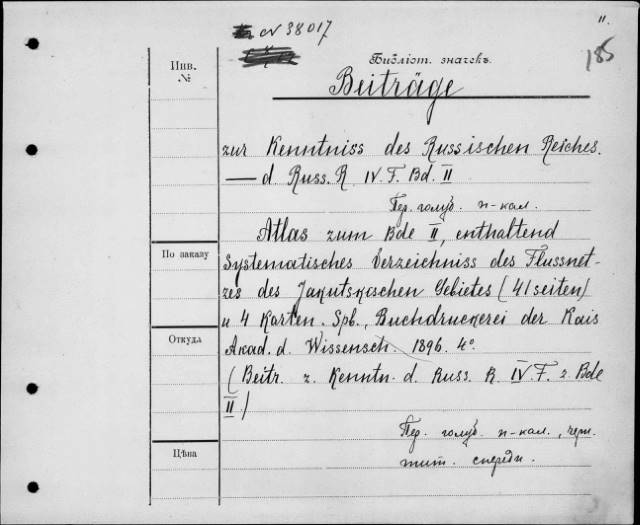 № 38017
11.
185
Инв.
№
Библіот. значекъ.
Beiträge
zur Kenntniss des Russischen Reiches.
— d Russ. R IV. F. Bd. II
Пер. голуб. п-кал.
Atlas zum Bde II, enthaltend
По заказу
Systematisches Verzeichniss des Flussnet-
zes des Jakutskischen Gebietes (41 seiten)
u 4 Karten. Spb., Buchdruckerei der Kais
Откуда
Akad. d. Wissensch. 1896. 4°.
(Beitr. z. Kenntn. d. Russ. R. IV. F. z. Bde
II.)
Пер. голуб. п-кал., черн.
Цѣна
тит. спереди.